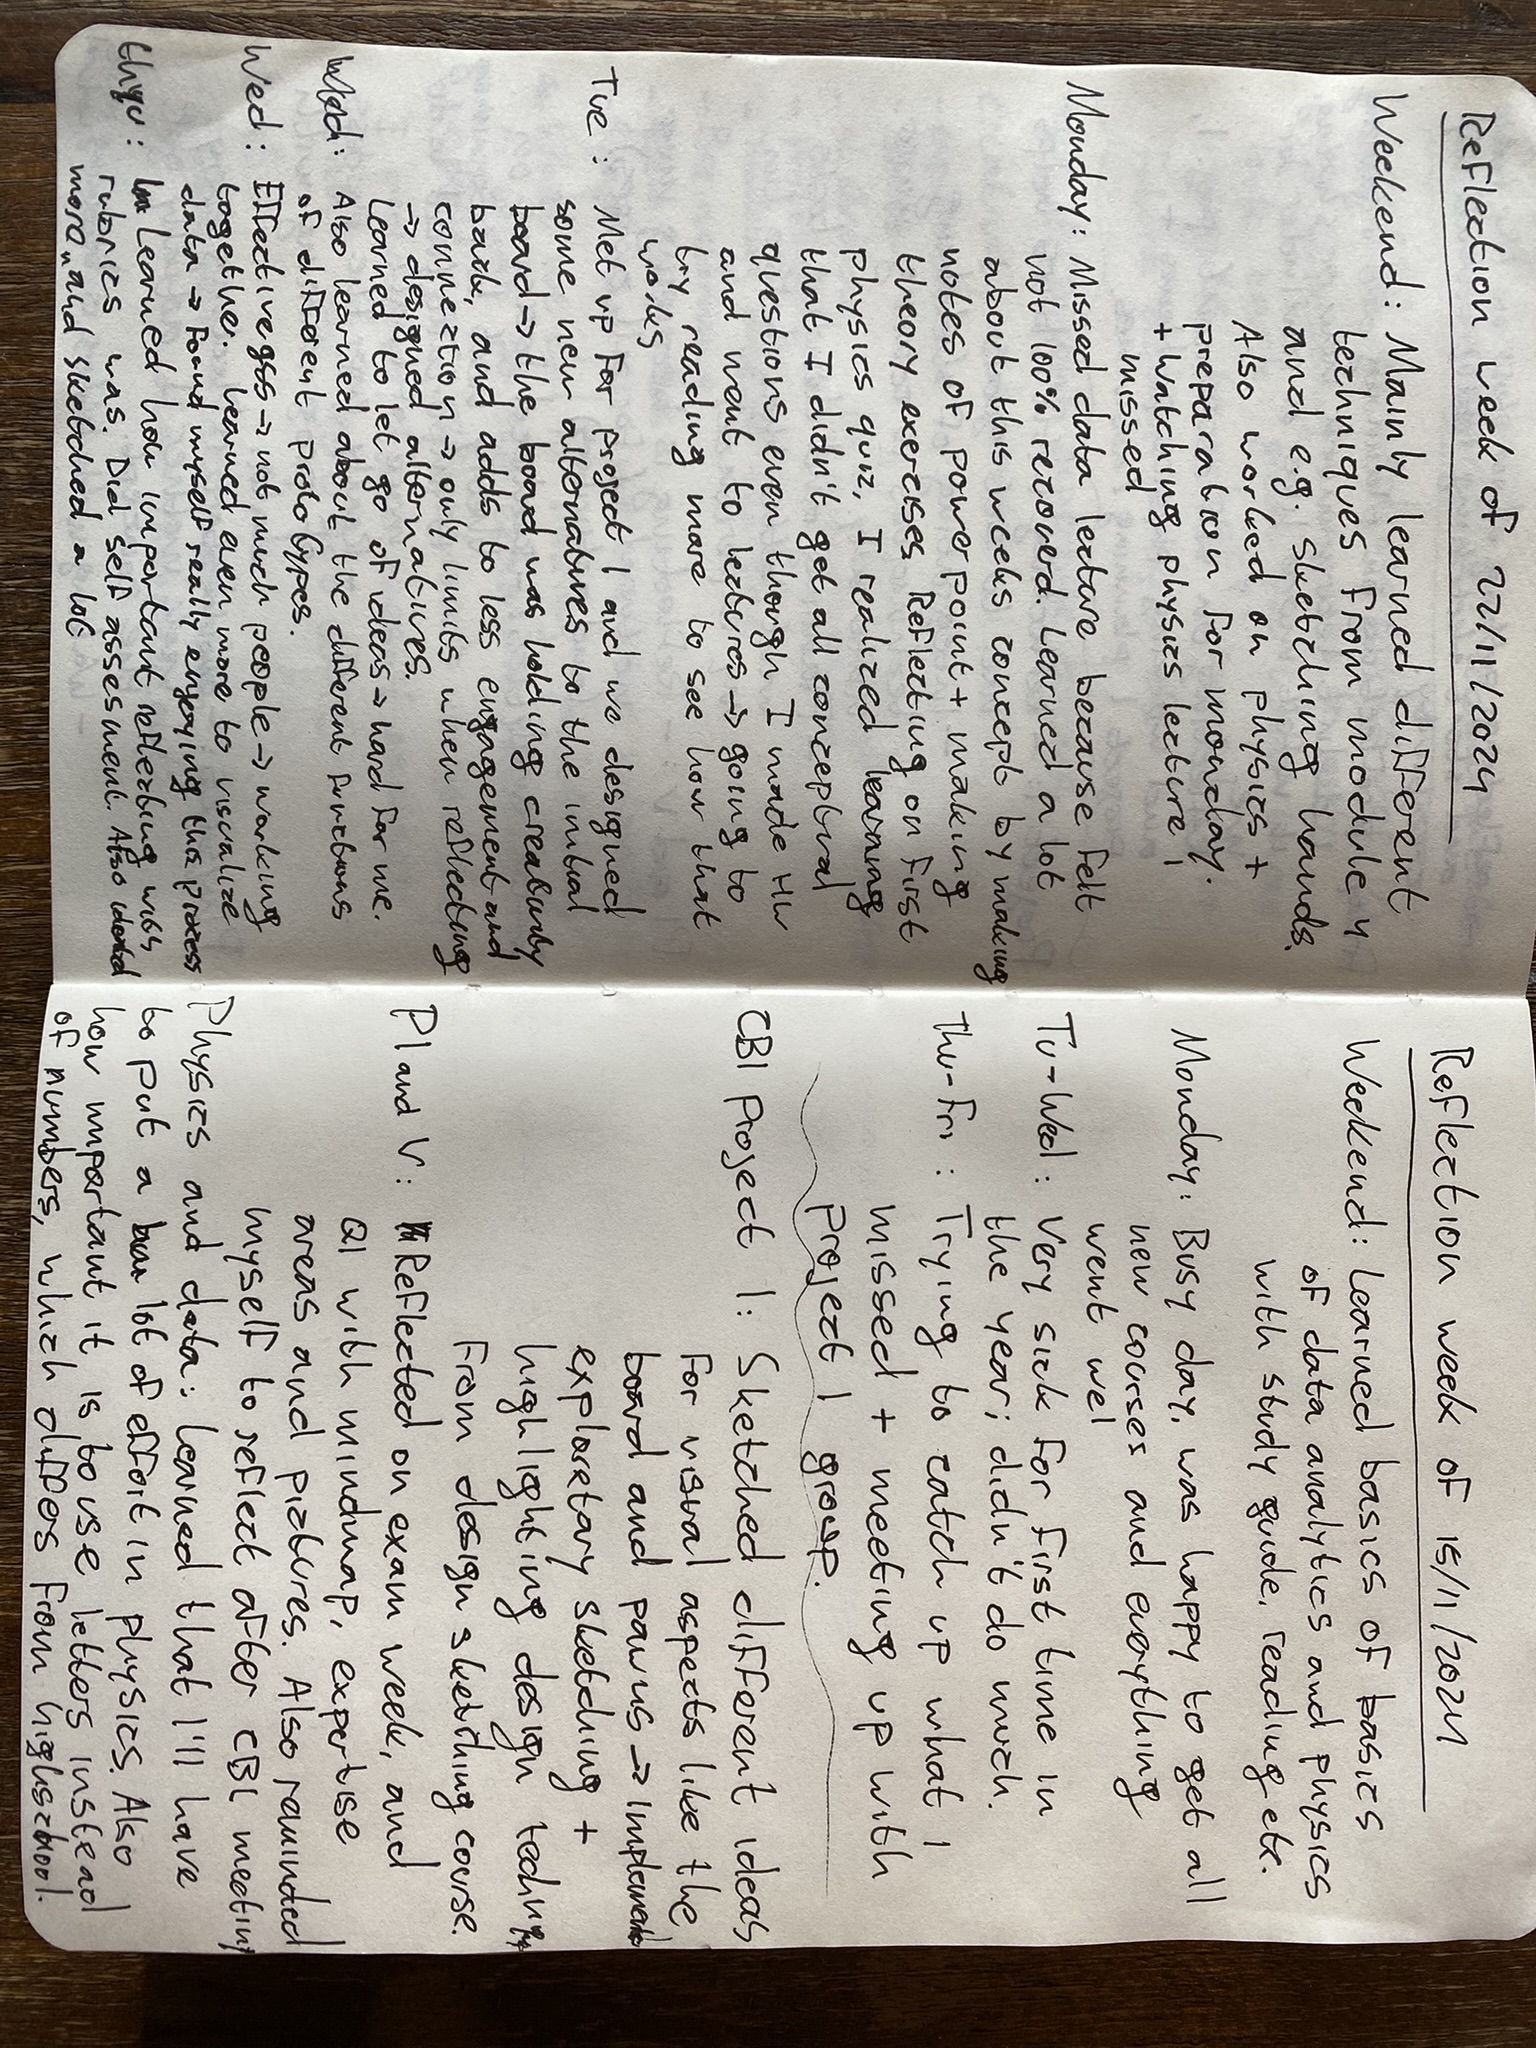 Reflection week of 22/11/2024
Weekend: Mainly learned different
techniques from module 4
and e.g. sketching hands.
Also worked on physics +
preparation for monday.
+ Watching physics lecture I
missed
Monday: Missed data lecture because felt
not 100% recoverd. Learned a lot
about this weeks concept by making
notes of powerpoint + making
theory exercises Reflecting on first
physics quiz, I realized learning
that I didn't get all conceptual
questions even though I made HW
and went to lectures → going to
try reading more to see how that
works
Tue: Met up for project 1 and we designed
some new alternatives to the initial
board → the board was holding creativity
back, and adds to less engagement and
connection → only limits when reflecting
→ designed alternatives.
Learned to let go of ideas → hard for me.
Wed: Also learned about the different functions
of different prototypes.
Wed: Effective gss → not much people → working
together. Learned even more to visualize
data → found myself really enjoying this process
thu: Learned how important reflecting with
rubrics was. Did self assesment. Also worked
more and sketched a lot
Reflection week of 15/11/2024
Weekend: Learned basics of basics
of data analytics and physics
with study guide, reading etc.
Monday: Busy day, was happy to get all
new courses and everything
went wel
Tu-Wed: Very sick for first time in
the year; didn't do much.
Thu-Fri: Trying to catch up what I
missed + meeting up with
project 1 group.
CBL project 1: Sketched different ideas
for visual aspects like the
board and pawns → implemented
exploretary sketching +
highlighting design
from design sketching course.
PI and V: Reflected on exam week, and
Q1 with mindmap, expertise
areas and pictures. Also reminded
myself to reflect after CBL meeting
Physics and data: Learned that I'll have
to put a lot of effort in physics. Also
how important it is to use letters instead
of numbers, which differs from highschool.